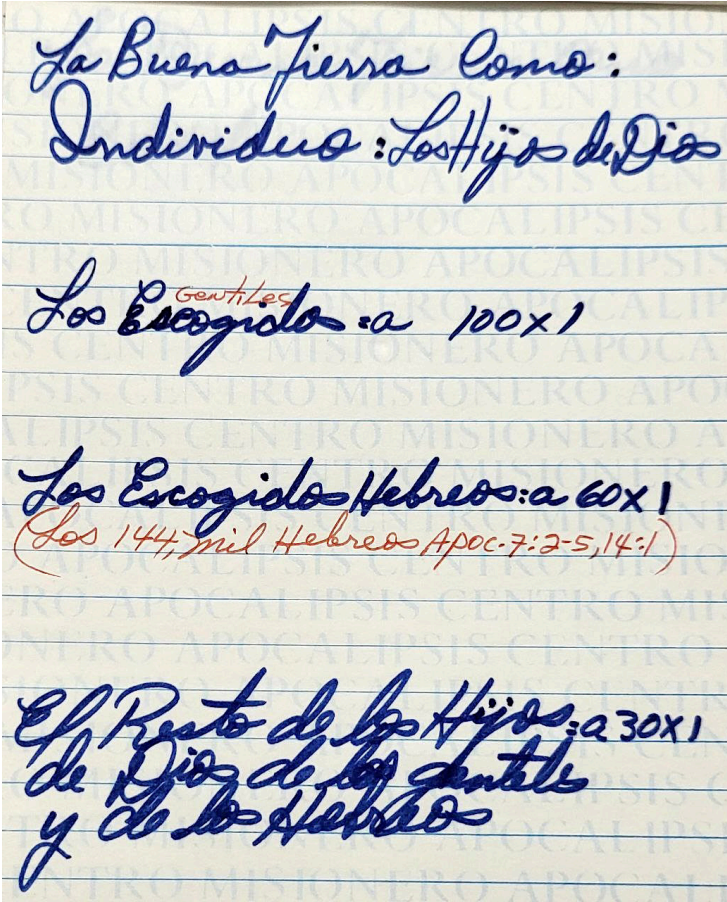 La Buena Tierra Como:
Individuo: Los Hijos de Dios
Gentiles
Los Escogidos: a 100x1
Los Escogidos Hebreos: a 60x1
(Los 144, mil Hebreos Apoc. 7:2-5, 14:1)
El Resto de los Hijos: a 30x1
de Dios de los gentiles
y de los Hebreos
CENTRO MISIONERO APOCALIPSIS